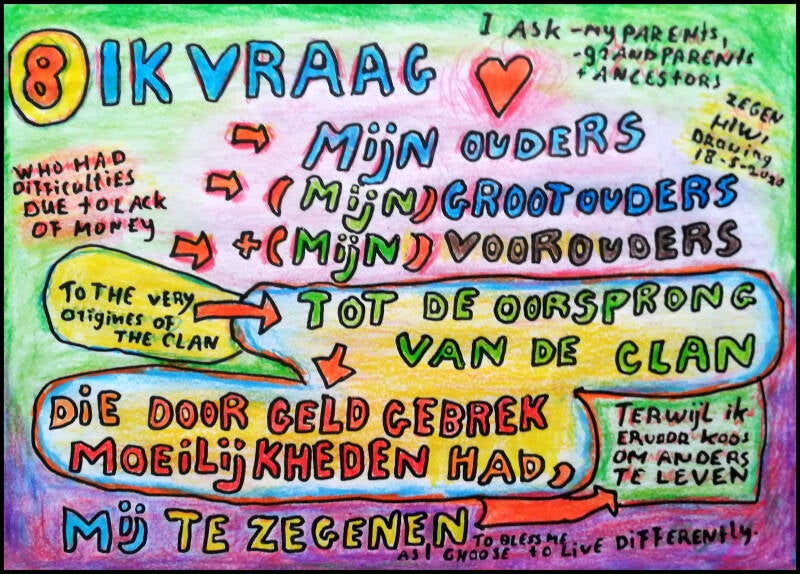 8 IK VRAAG
I ASK -MY PARENTS,
-GRANDPARENTS
+ ANCESTORS
ZEGEN
HIW,
DRAWING
18-5-2020
MIJN OUDERS
(MIJN) GROOTOUDERS
+(MIJN) VOOROUDERS
WHO HAD
DIFFICULTIES
DUE TO LACK
OF MONEY
TO THE VERY
ORIGINES OF
THE CLAN
TOT DE OORSPRONG
VAN DE CLAN
DIE DOOR GELD GEBREK
MOEILIJKHEDEN HAD,
TERWIJL IK
ERVOOR KOOS
OM ANDERS
TE LEVEN
MIJ TE ZEGENEN
TO BLESS ME
AS I CHOOSE TO LIVE DIFFERENTLY.